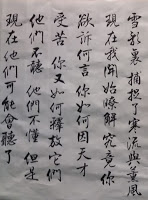 雪裏 捕捉了寒流與薰風
現在我開始瞭解 究竟你
欲訴何言 你如何因天才
受苦 你又如何釋放它們
他們不聽 他們不懂 但是
現在他們可能會聽了